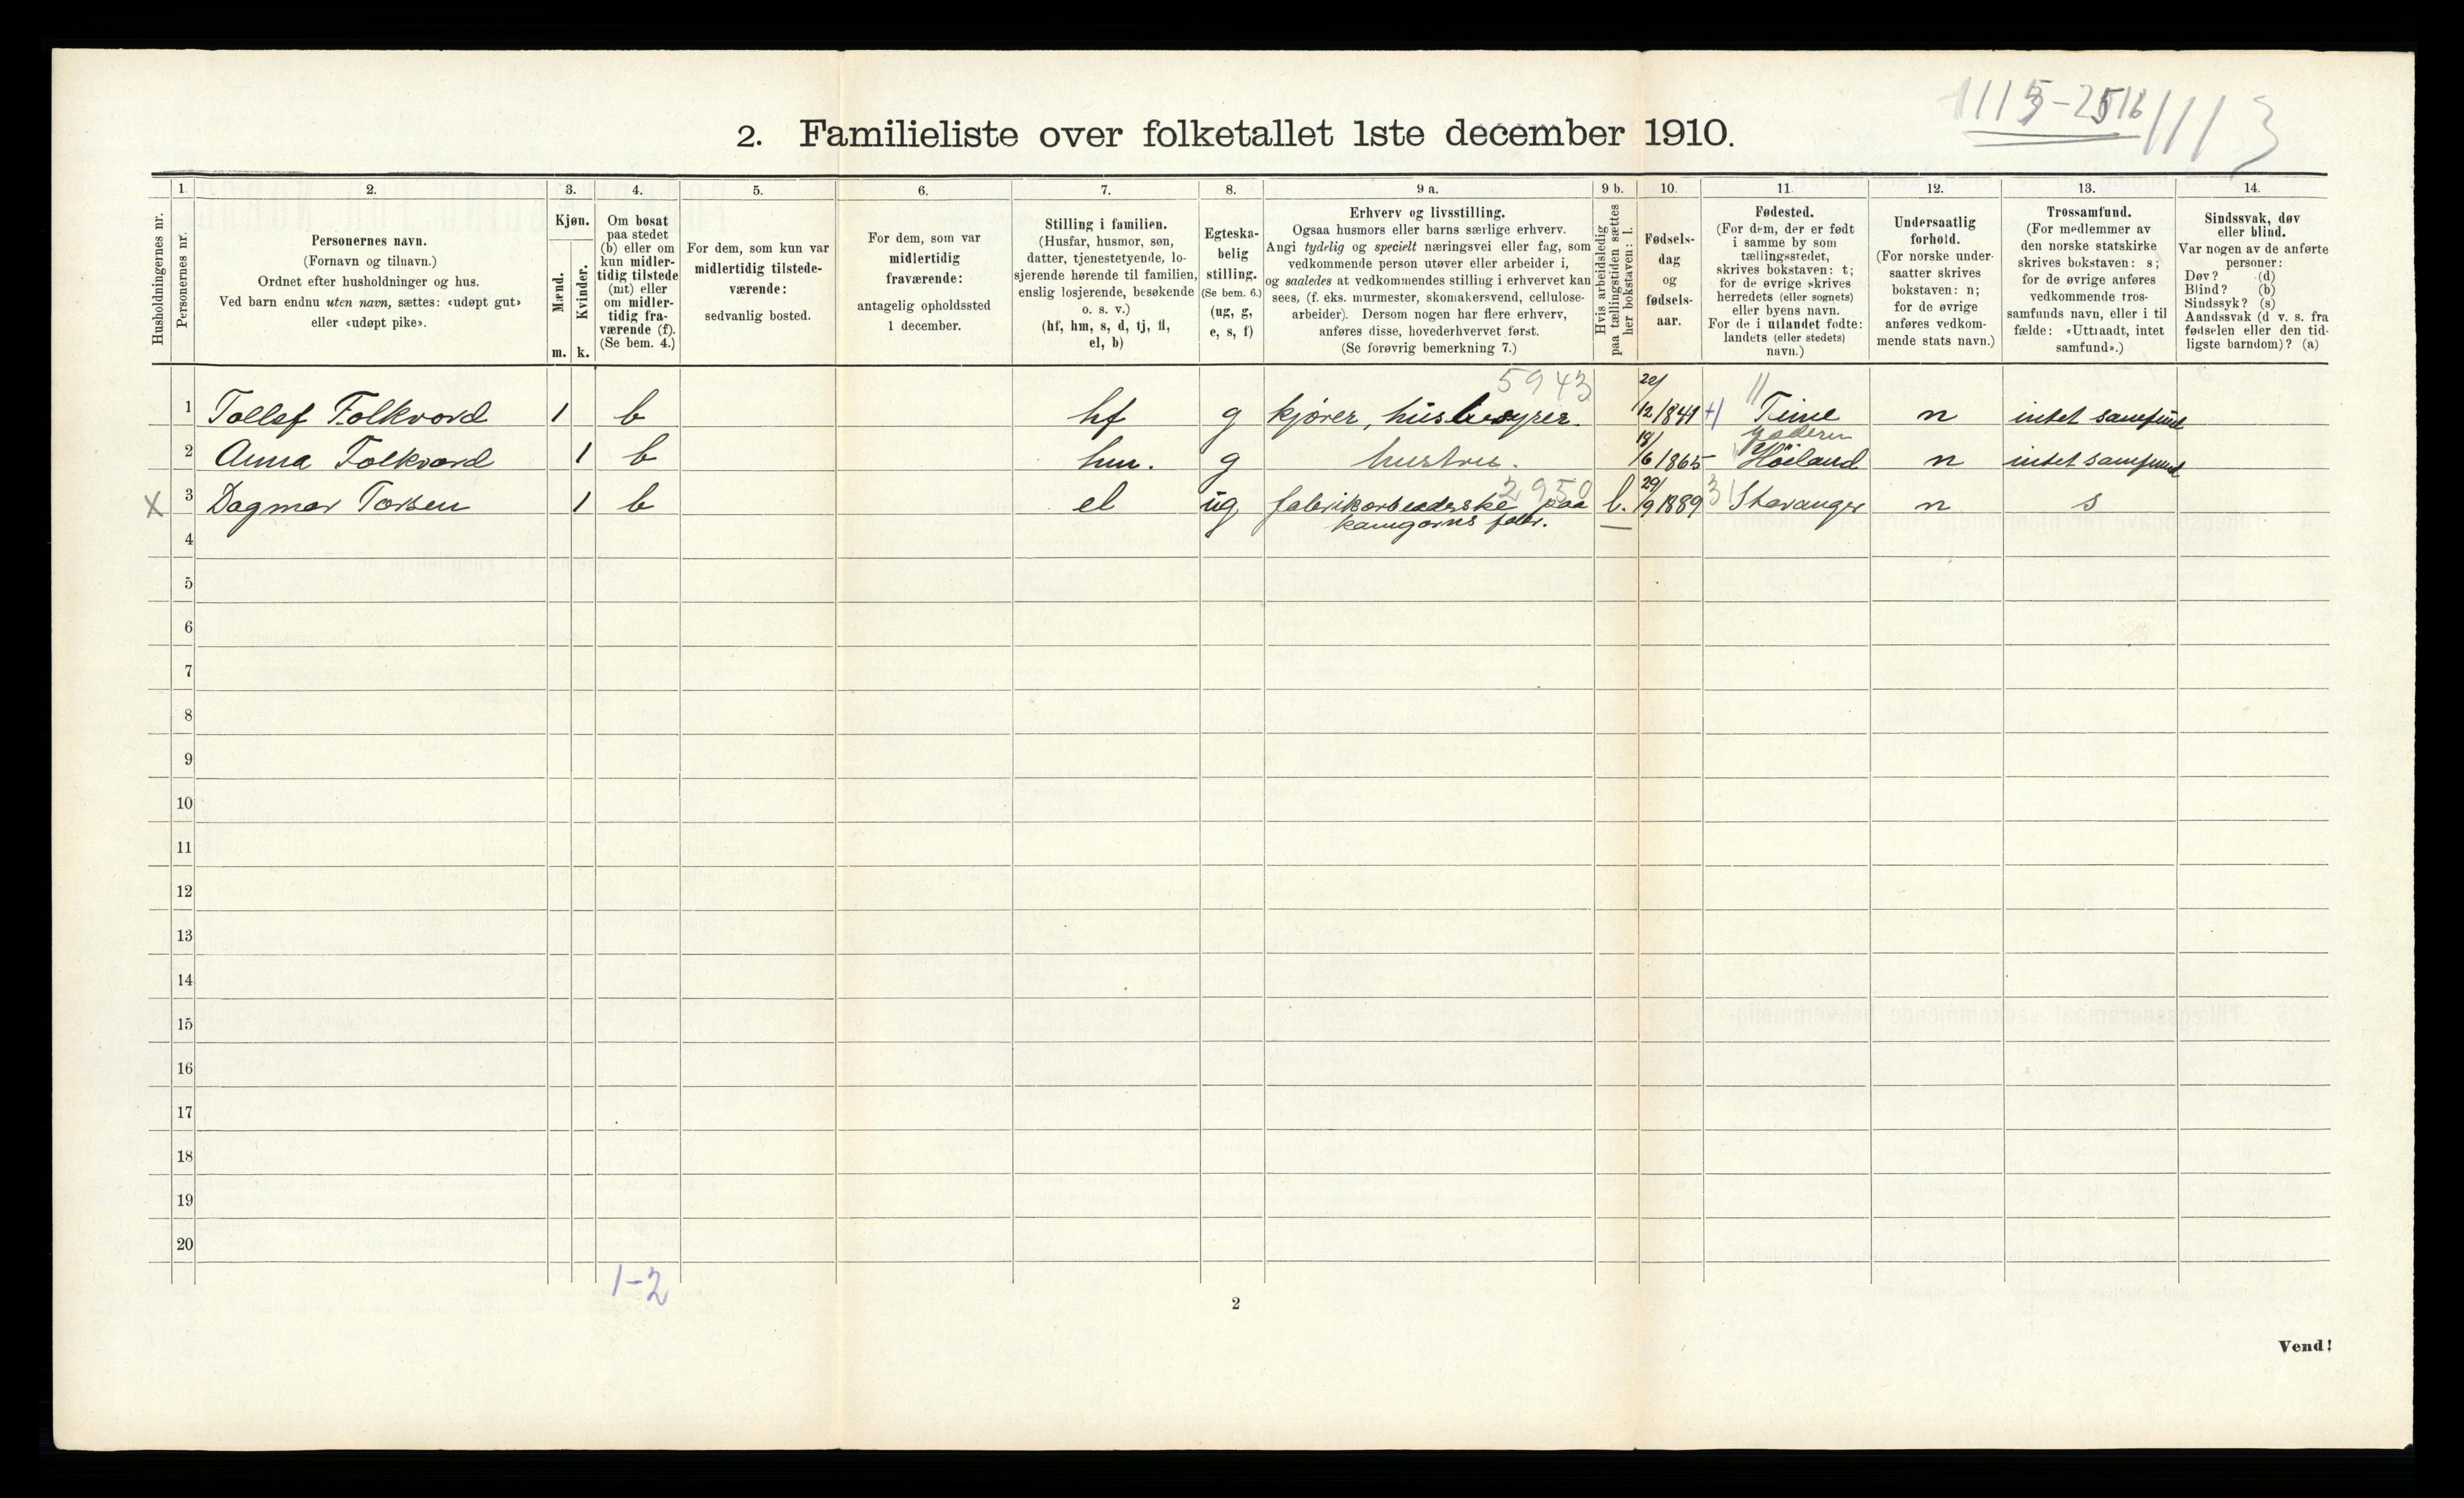 1115-2516 111 3
2. Familieliste over folketallet 1ste december 1910.
1. 2. 3. 4. 5. 6. 7. 8. 9 a. 9 b. 10. 11. 12. 13. 14.
Husholdningernes nr.
Personernes nr.
Personernes navn.
(Fornavn og tilnavn.)
Ordnet efter husholdninger og hus.
Ved barn endnu uten navn, sættes: «udøpt gut»
eller «udøpt pike».
Kjøn.
Mænd.
Kvinder.
m. k.
Om bosat
paa stedet
(b) eller om
kun midler-
tidig tilstede
(mt) eller
om midler-
tidig fra-
værende (f).
(Se bem. 4.)
For dem, som kun var
midlertidig tilstede-
værende:
sedvanlig bosted.
For dem, som var
midlertidig
fraværende:
antagelig opholdssted
1 december.
Stilling i familien.
(Husfar, husmor, søn,
datter, tjenestetyende, lo-
sjerende hørende til familien,
enslig losjerende, besøkende
o. s. v.)
(hf, hm, s, d, tj, fl,
el, b)
Egteska-
belig
stilling.
(Se bem. 6.)
(ug, g,
e, s, f)
Erhverv og livsstilling.
Ogsaa husmors eller barns særlige erhverv.
Angi tydelig og specielt næringsvei eller fag, som
vedkommende person utøver eller arbeider i,
og saaledes at vedkommendes stilling i erhvervet kan
sees, (f. eks. murmester, skomakersvend, cellulose-
arbeider). Dersom nogen har flere erhverv,
anføres disse, hovederhvervet først.
(Se forøvrig bemerkning 7.)
Hvis arbeidsledig
paa tællingstiden sættes
her bokstaven: l.
Fødsels-
dag
og
fødsels-
aar.
Fødested.
(For dem, der er født
i samme by som
tællingsstedet,
skrives bokstaven: t;
for de øvrige skrives
herredets (eller sognets)
eller byens navn.
For de i utlandet fødte:
landets (eller stedets)
navn.)
Undersaatlig
forhold.
(For norske under-
saatter skrives
bokstaven: n;
for de øvrige
anføres vedkom-
mende stats navn.)
Trossamfund.
(For medlemmer av
den norske statskirke
skrives bokstaven: s;
for de øvrige anføres
vedkommende tros-
samfunds navn, eller i til
fælde: «Uttraadt, intet
samfund».)
Sindssvak, døv
eller blind.
Var nogen av de anførte
personer:
Døv? (d)
Blind? (b)
Sindssyk? (s)
Aandssvak (d v. s. fra
fødselen eller den tid-
ligste barndom)? (a)
5943
1 Tollef Folkvord 1 b hf g kjører, husbestyrer. 20/12 1841 Time n intet samfund
Jæderen
2 Anna Folkvord 1 b hm. g hustru. 18/6 1865 Höiland n intet samfund
2950
X 3 Dagmar Torsen 1 b el ug fabrikarbeiderske paa l. 29/9 1889 Stavanger n s
kamgarns fabr.
4
5
6
7
8
9
10
11
12
13
14
15
16
17
18
19
20
1-2
2
Vend!